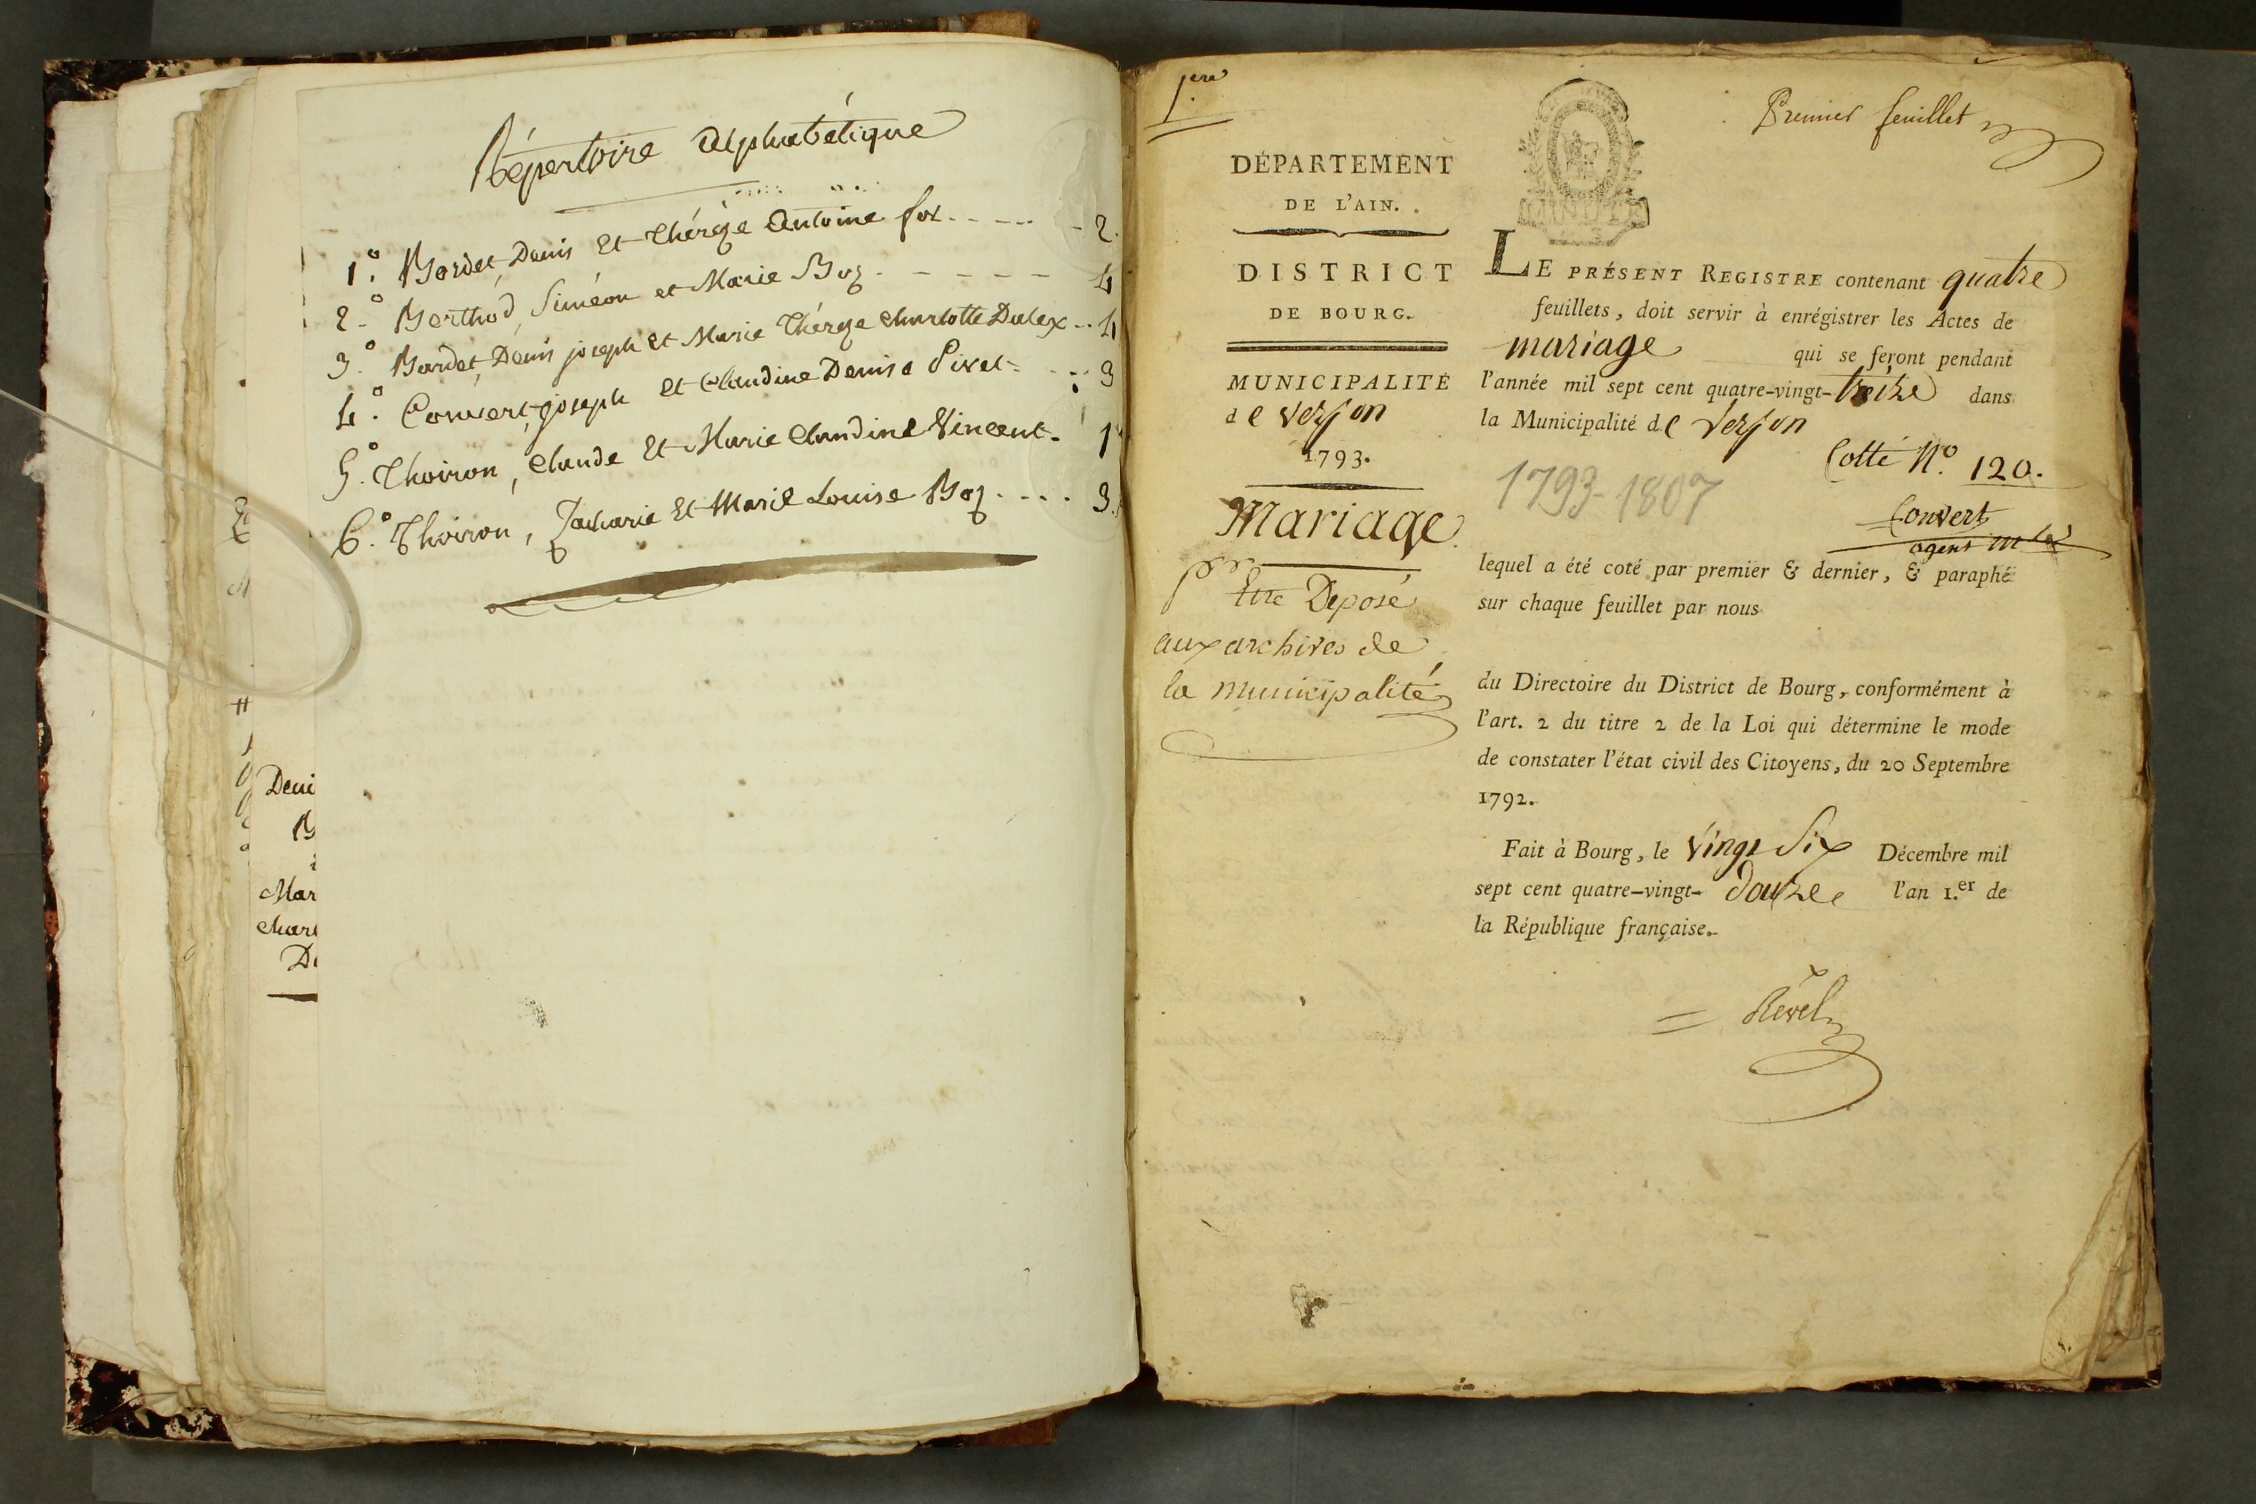 Répertoire Alphabétique
1.° Bordet, Denis et Thérèze Antoine fox ---- 2.
2.° Berthod, Siméon et Marie Boz ------ 4
3.° Bordet, Denis joseph et Marie Thérèze Charlotte Dalex -- 4
4.° Convert, joseph et Claudine Denise Pivet --- 3
5.° Thoiron, Claude et Marie Claudine Vincent - 1
6.° Thoiron, Zacharie et Marie Louise Boz ---- 3.
Deni
B
Mar
char
De
1ere
Premier feuillet
DÉPARTEMENT
DE L'AIN.
DISTRICT
DE BOURG.
MUNICIPALITÉ
de verjon
1793.
Mariage
pr Etre Déposé
aux archives de
la municipalité
LE PRÉSENT REGISTRE contenant quatre
feuillets, doit servir à enrégistrer les Actes de
mariage qui se feront pendant
l'année mil sept cent quatre-vingt-treize dans
la Municipalité de verjon
Cotté N.° 120.
1793-1807
Convert
agent
lequel a été coté par premier & dernier, & paraphé
sur chaque feuillet par nous
du Directoire du District de Bourg, conformément à
l'art. 2 du titre 2 de la Loi qui détermine le mode
de constater l'état civil des Citoyens, du 20 Septembre
1792.
Fait à Bourg, le vingt Six Décembre mil
sept cent quatre-vingt-douze l'an 1.er de
la République française.
Revel